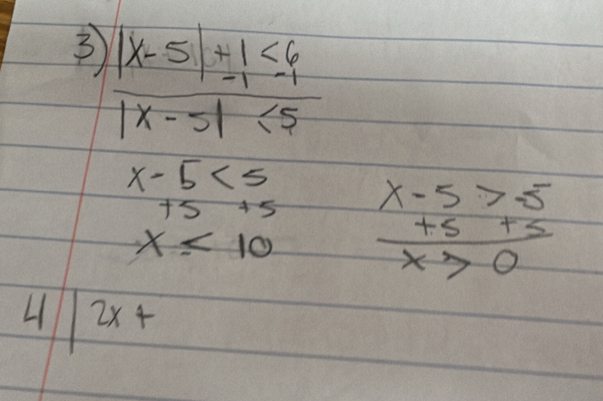 3) |x-5| + 1 < 6
-1 -1
|x-5| < 5
x - 5 < 5
+5 +5
x ≤ 10
x - 5 > -5
+5 +5
x > 0
4 | 2x +